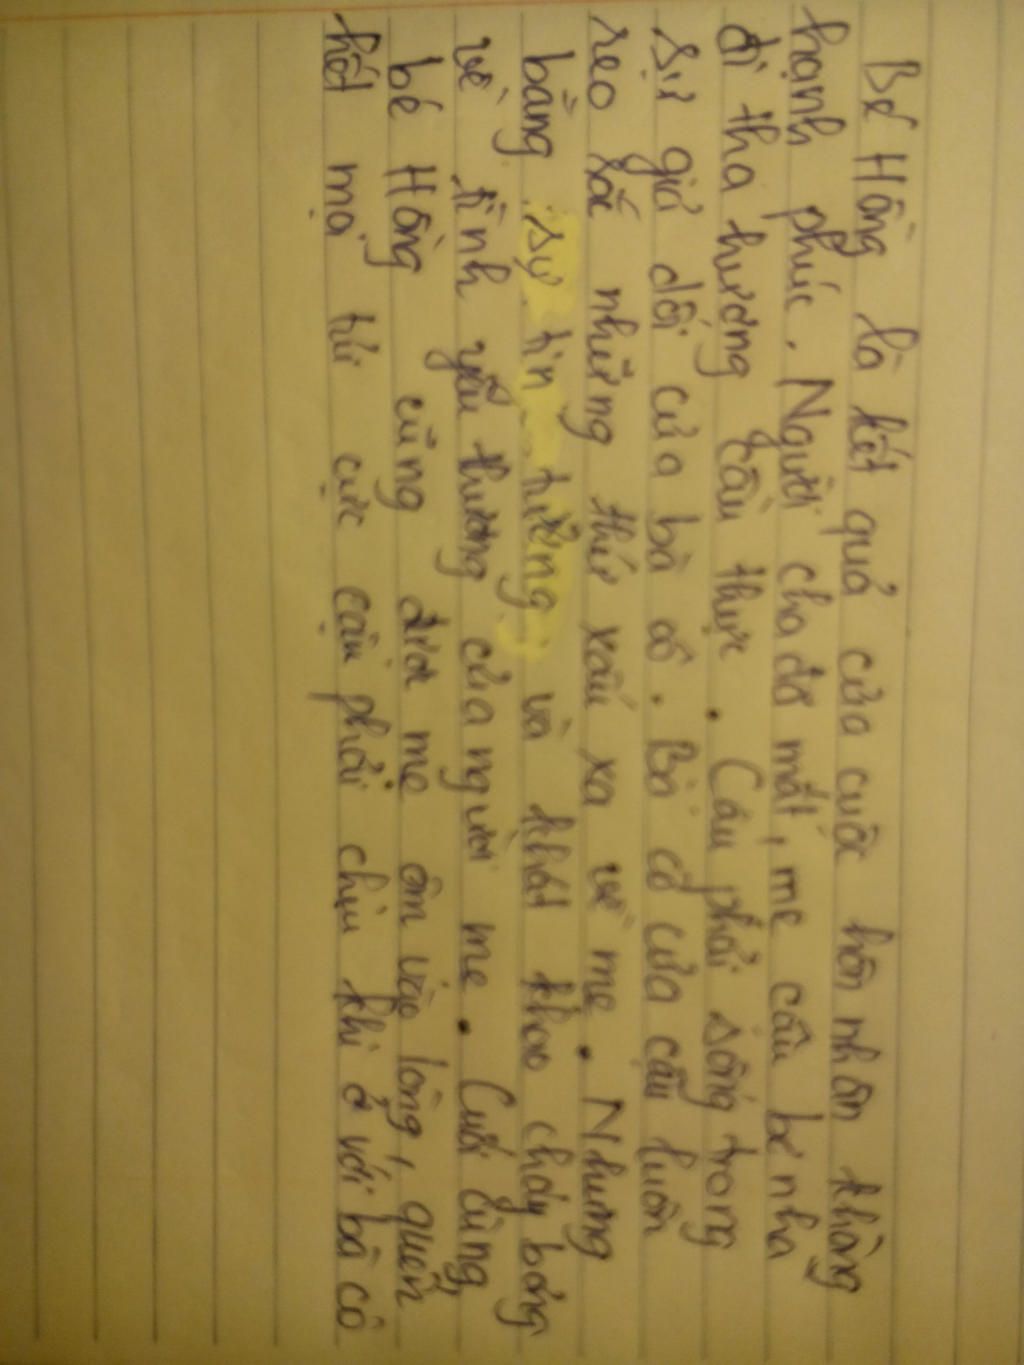 Bé Hồng là kết quả của cuộc hôn nhân không
hạnh phúc. Người cha đã mất, mẹ cậu bé nha
đi tha hương cầu thực. Cậu phải sống trong
sự giả dối của bà cô. Bà cô của cậu luôn
reo rắc những thứ xấu xa về mẹ. Nhưng
bằng sự tin tưởng và khát khao cháy bỏng
về tình yêu thương của người mẹ. Cuối cùng,
bé Hồng cũng được mẹ ôm vào lòng, quên
hết mọi tủi cực cậu phải chịu khi ở với bà cô